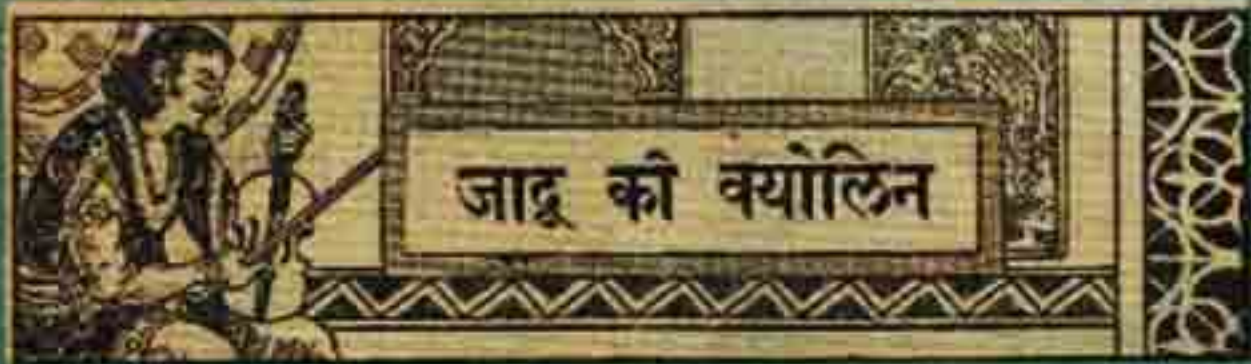 जादू की वयोलिन